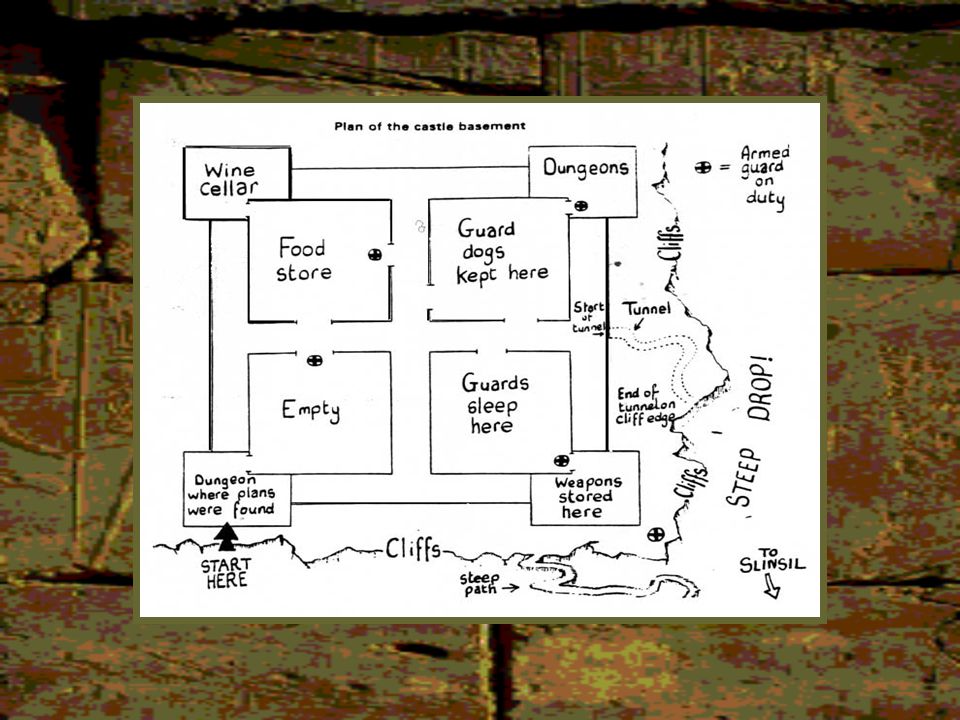 Plan of the castle basement
Wine
cellar
Dungeons
= Armed
guard
on
duty
Food
store
Guard
dogs
kept here
Cliffs
Start
of
tunnel
Tunnel
Empty
Guards
sleep
here
End of
tunnel on
cliff edge
STEEP DROP!
Dungeon
where plans
were found
Weapons
stored
here
Cliffs
START
HERE
Cliffs
steep
path
TO
SLINSIL